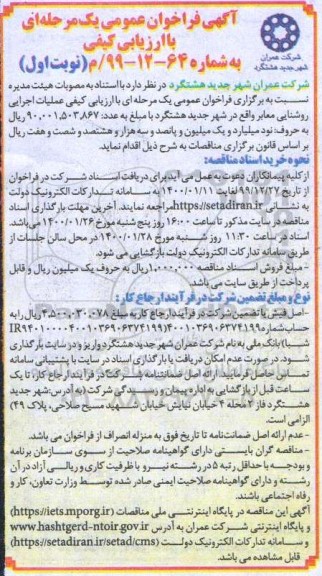 آگهی فراخوان عمومی یک مرحله‌ای
با ارزیابی کیفی
به شماره ۶۴-۱۲-۹۹/م (نوبت اول)
شرکت عمران
شهر جدید هشتگرد
شرکت عمران شهر جدید هشتگرد در نظر دارد با استناد به مصوبات هیئت مدیره
نسبت به برگزاری فراخوان عمومی یک مرحله ای با ارزیابی کیفی عملیات اجرایی
روشنایی معابر واقع در شهر جدید هشتگرد با مبلغ به عدد: ۹۰،۰۰۱،۵۰۳،۸۶۷ ریال
به حروف: نود میلیارد و یک میلیون و پانصد و سه هزار و هشتصد و شصت و هفت ریال
بر اساس قانون برگزاری مناقصات به شرح ذیل اقدام نماید.
نحوه خرید اسناد مناقصه:
از کلیه پیمانکاران دعوت به عمل می آید برای دریافت اسناد شرکت در فراخوان
از تاریخ ۹۹/۱۲/۲۷ لغایت ۱۴۰۰/۰۱/۱۱ به سامانه تدارکات الکترونیک دولت
به نشانی https://setadiran.ir مراجعه نمایند. آخرین مهلت بارگذاری اسناد
مناقصه در سایت مذکور تا ساعت ۱۶:۰۰ روز پنج شنبه مورخ ۱۴۰۰/۰۱/۲۶ می‌باشد.
اسناد در ساعت ۱۱:۳۰ روز شنبه مورخ ۱۴۰۰/۰۱/۲۸ در محل سالن جلسات از
طریق سامانه تدارکات الکترونیک دولت بازگشایی می شود.
- مبلغ فروش اسناد مناقصه ۱،۰۰۰،۰۰۰ ریال به حروف یک میلیون ریال و قابل
پرداخت از طریق سایت می باشد.
نوع و مبلغ تضمین شرکت در فرآیند ارجاع کار:
-اصل فیش یا تضمین شرکت در فرآیند ارجاع کار به مبلغ ۴،۵۰۰،۰۳۰،۰۷۸ ریال را به
حساب شماره
شبا) بانک ملی به نام شرکت عمران شهر جدید هشتگرد واریز و در سایت بارگذاری
شود. در صورت عدم امکان دریافت یا بارگذاری اسناد در سایت با پشتیبانی سامانه
تماس حاصل فرمایید. ارائه اصل ضمانتنامه شرکت در فرآیند ارجاع کار، تا یک
ساعت قبل از بازگشایی به اداره پیمان و رسیدگی شرکت (به آدرس: شهر جدید
هشتگرد فاز ۲ محله ۴ خیابان نیایش خیابان شهید مسیح صلاحی، پلاک ۴۹)
الزامی است.
- عدم ارائه اصل ضمانت‌نامه تا تاریخ فوق به منزله انصراف از فراخوان می باشد.
- مناقصه گران بایستی دارای گواهینامه صلاحیت از سوی سازمان برنامه
و بودجه با حداقل رتبه ۵ در رشته نیرو با ظرفیت کاری و ریالی آزاد در آن
رشته و دارای گواهینامه صلاحیت ایمنی صادر شده توسط وزارت تعاون، کار و
رفاه اجتماعی باشند.
آگهی این مناقصه در پایگاه اینترنتی ملی مناقصات (https://iets.mporg.ir)
و پایگاه اینترنتی شرکت عمران به آدرس www.hashtgerd-ntoir.gov.ir
و سامانه تدارکات الکترونیک دولت (https://setadiran.ir/setad/cms)
قابل مشاهده می باشد.